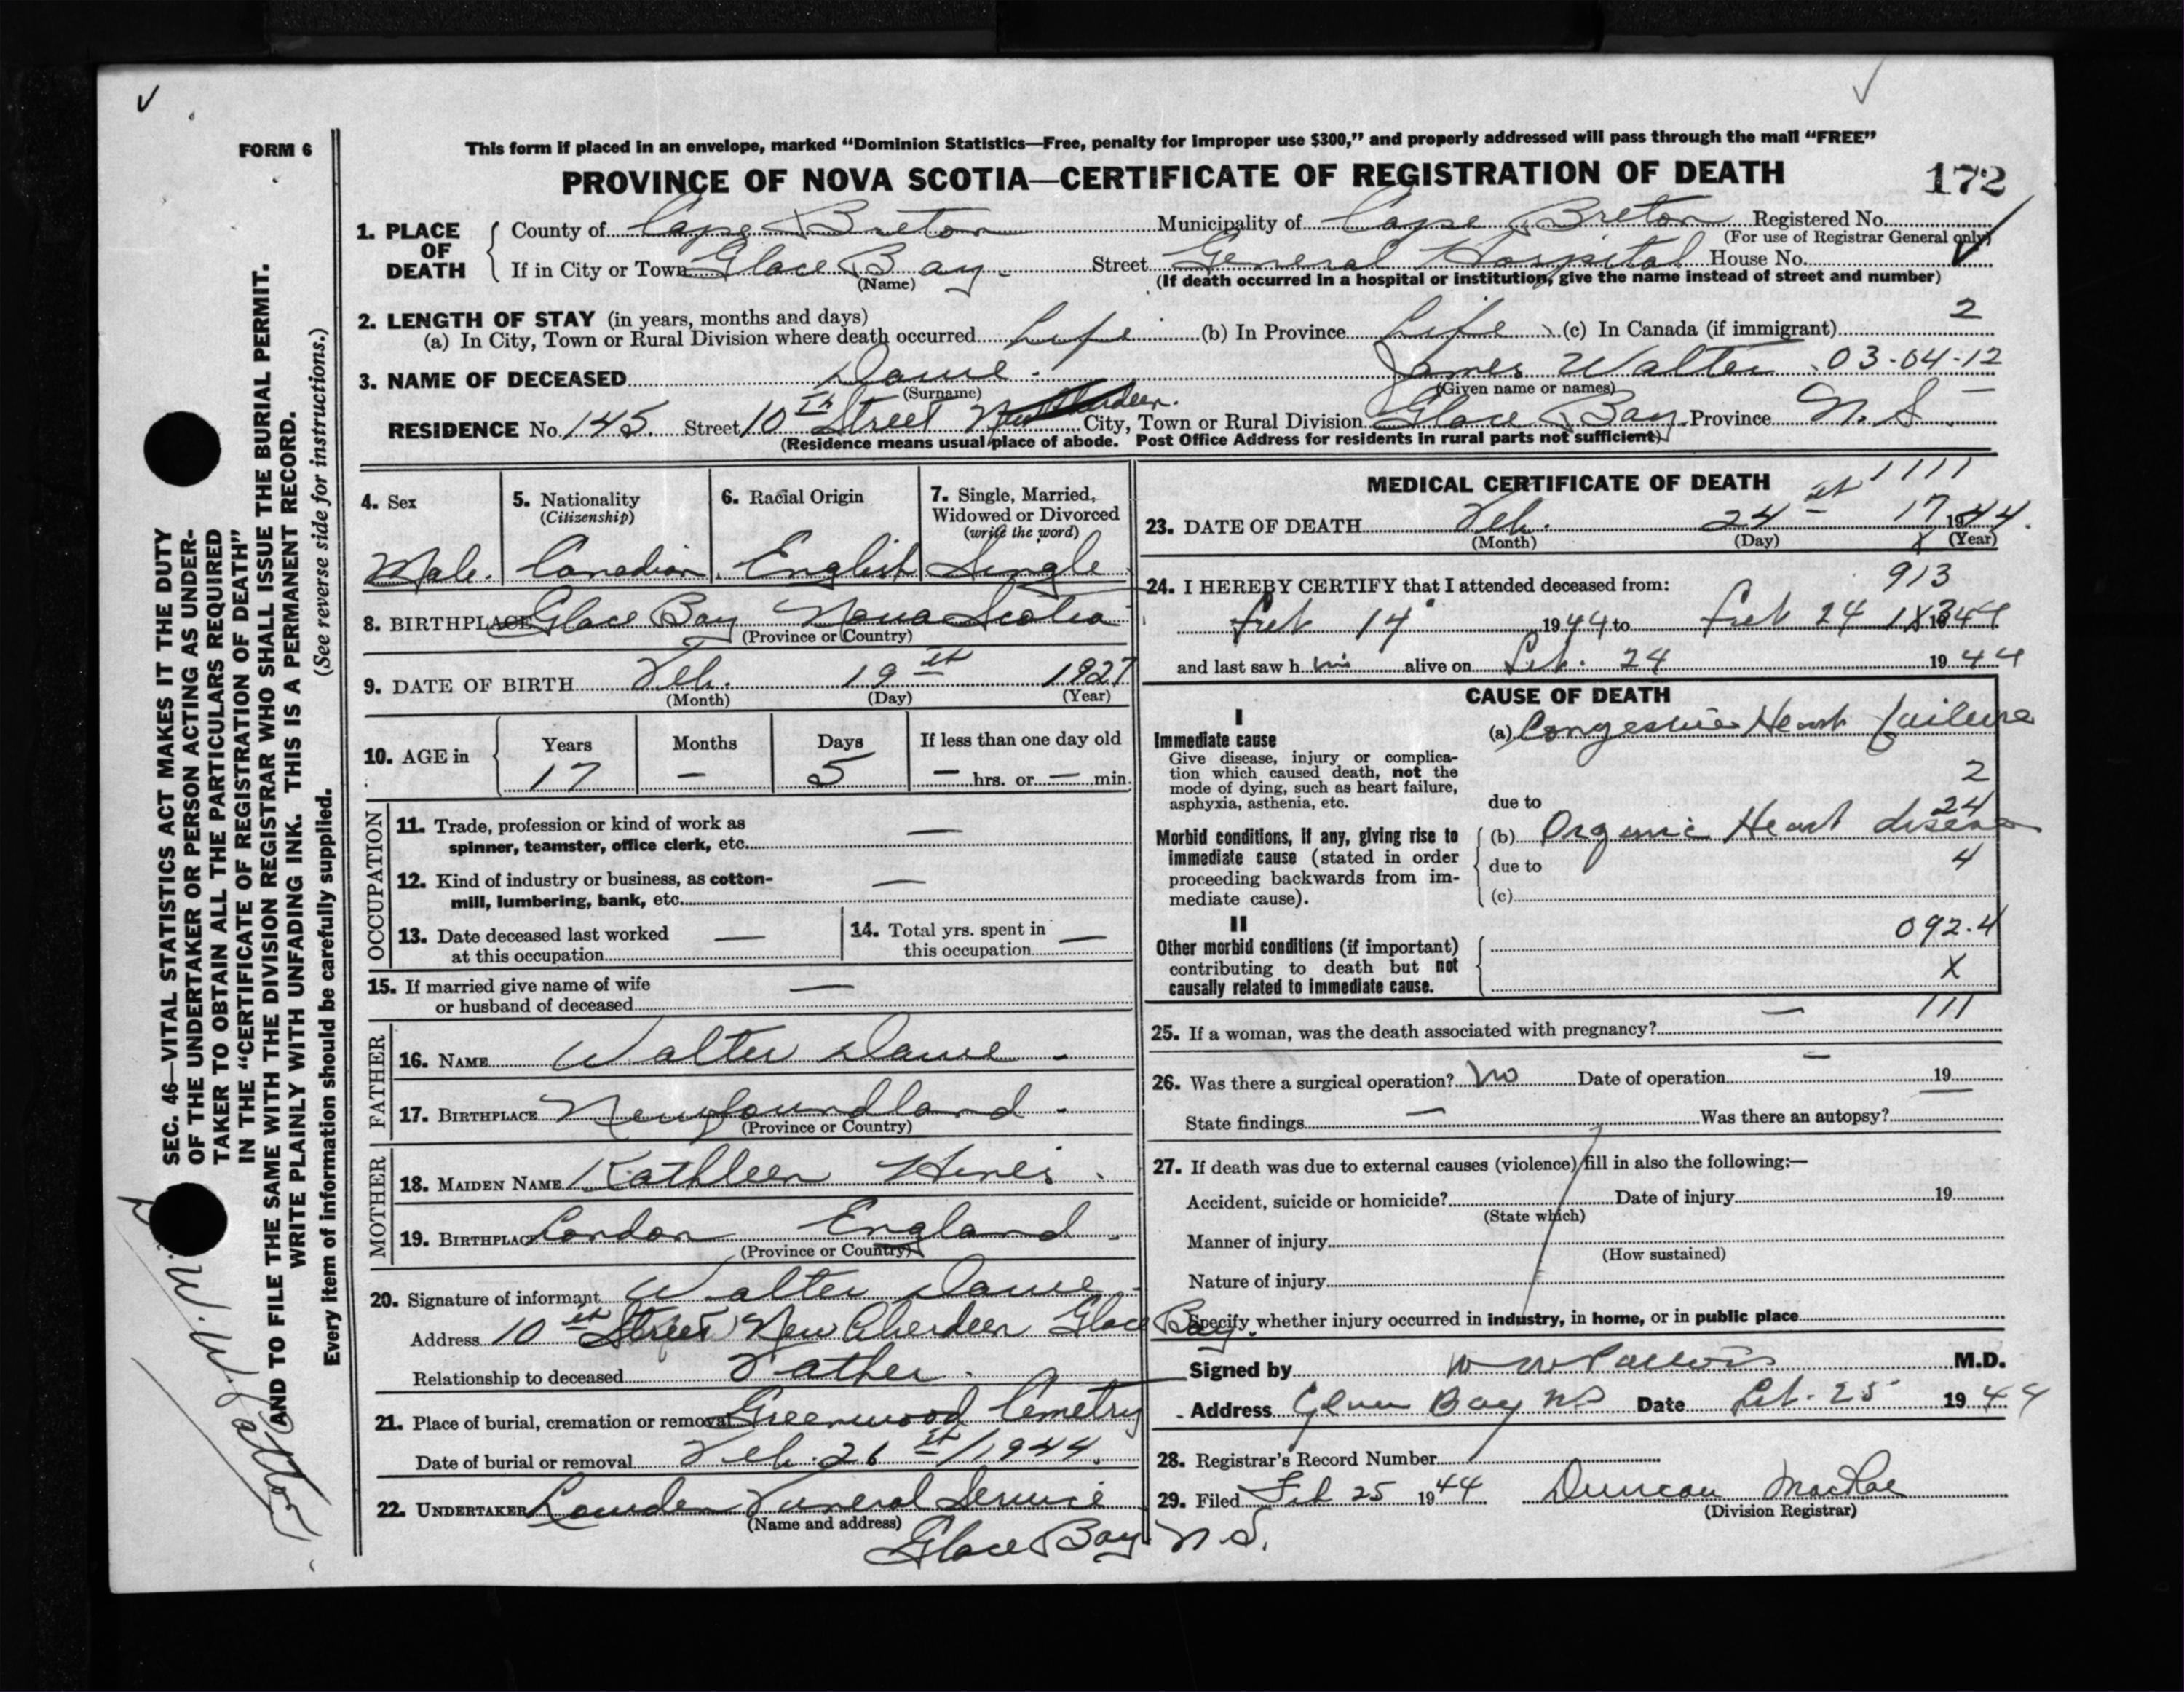 FORM 6
This form if placed in an envelope, marked “Dominion Statistics—Free, penalty for improper use $300,” and properly addressed will pass through the mail “FREE”
PROVINCE OF NOVA SCOTIA—CERTIFICATE OF REGISTRATION OF DEATH
172
1. PLACE OF DEATH
County of Cape Breton Municipality of Cape Breton Registered No.
(For use of Registrar General only)
If in City or Town Glace Bay Street General Hospital House No.
(Name) (If death occurred in a hospital or institution, give the name instead of street and number)
2. LENGTH OF STAY (in years, months and days)
2
(a) In City, Town or Rural Division where death occurred Life (b) In Province Life (c) In Canada (if immigrant)
3. NAME OF DECEASED Dawe James Walter 03-04-12
(Surname) (Given name or names)
RESIDENCE No. 145 Street 10th Street New Aberdeen City, Town or Rural Division Glace Bay Province N.S.
(Residence means usual place of abode. Post Office Address for residents in rural parts not sufficient)
4. Sex
Male.
5. Nationality
(Citizenship)
Canadian
6. Racial Origin
English
7. Single, Married,
Widowed or Divorced
(write the word)
Single
8. BIRTHPLACE Glace Bay Nova Scotia
(Province or Country)
9. DATE OF BIRTH Feb. 19 1927
(Month) (Day) (Year)
10. AGE in
Years Months Days If less than one day old
17 — 5 — hrs. or — min.
OCCUPATION
11. Trade, profession or kind of work as
spinner, teamster, office clerk, etc. —
12. Kind of industry or business, as cotton-
mill, lumbering, bank, etc. —
13. Date deceased last worked
at this occupation —
14. Total yrs. spent in
this occupation —
15. If married give name of wife
or husband of deceased —
FATHER
16. NAME Walter Dawe
17. BIRTHPLACE Newfoundland
(Province or Country)
MOTHER
18. MAIDEN NAME Kathleen Hines
19. BIRTHPLACE London England
(Province or Country)
20. Signature of informant Walter Dawe
Address 10 Street New Aberdeen Glace Bay.
Relationship to deceased Father
21. Place of burial, cremation or removal Greenwood Cemetry
Date of burial or removal Feb. 26 / 1944.
22. UNDERTAKER Lowden Funeral Service
(Name and address)
Glace Bay N.S.
MEDICAL CERTIFICATE OF DEATH
1111
17
23. DATE OF DEATH Feb. 24 1944.
(Month) (Day) (Year)
X
24. I HEREBY CERTIFY that I attended deceased from:
913
Feb 14 1944 to Feb 24 1944
and last saw him alive on Feb. 24 1944
CAUSE OF DEATH
I
Immediate cause
Give disease, injury or complica-
tion which caused death, not the
mode of dying, such as heart failure,
asphyxia, asthenia, etc.
(a) Congestive Heart failure
2
due to
24
Morbid conditions, if any, giving rise to
immediate cause (stated in order
proceeding backwards from im-
mediate cause).
(b) Organic Heart disease
due to
4
(c)
II
Other morbid conditions (if important)
contributing to death but not
causally related to immediate cause.
092.4
X
111
25. If a woman, was the death associated with pregnancy? —
26. Was there a surgical operation? No Date of operation — 19
State findings — Was there an autopsy?
27. If death was due to external causes (violence) fill in also the following:—
Accident, suicide or homicide? Date of injury 19
(State which)
Manner of injury
(How sustained)
Nature of injury
Specify whether injury occurred in industry, in home, or in public place
Signed by M.D.
Address Glace Bay NS Date Feb. 25 1944
28. Registrar's Record Number
29. Filed Feb 25 1944 Duncan MacRae
(Division Registrar)
SEC. 46—VITAL STATISTICS ACT MAKES IT THE DUTY
OF THE UNDERTAKER OR PERSON ACTING AS UNDER-
TAKER TO OBTAIN ALL THE PARTICULARS REQUIRED
IN THE “CERTIFICATE OF REGISTRATION OF DEATH”
AND TO FILE THE SAME WITH THE DIVISION REGISTRAR WHO SHALL ISSUE THE BURIAL PERMIT.
WRITE PLAINLY WITH UNFADING INK. THIS IS A PERMANENT RECORD.
Every item of information should be carefully supplied. (See reverse side for instructions.)